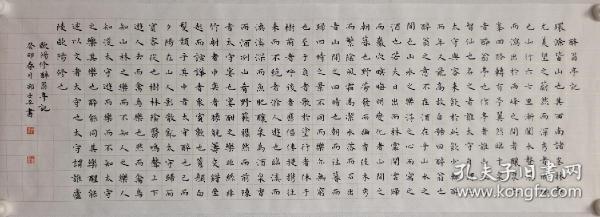 醉翁亭記
環滁皆山也其西南諸峰林壑
尤美望之蔚然而深秀者瑯琊
也山行六七里漸聞水聲潺潺
而瀉出於兩峰之間者釀泉也
峰回路轉有亭翼然臨於泉上
者醉翁亭也作亭者誰山之僧
智仙也名之者誰太守自謂也
太守與客來飲於此飲少輒醉
而年又最高故自號曰醉翁也
醉翁之意不在酒在乎山水之
間也山水之樂得之心而寓之
酒也若夫日出而林霏開雲歸
而巖穴暝晦明變化者山間之
朝暮也野芳發而幽香佳木秀
而繁陰風霜高潔水落而石出
者山間之四時也朝而往暮而
歸四時之景不同而樂亦無窮
也至於負者歌於途行者休於
樹前者呼後者應傴僂提攜往
來而不絕者滁人遊也臨溪而
漁溪深而魚肥釀泉為酒泉香
而酒洌山肴野蔌雜然而前陳
者太守宴也宴酣之樂非絲非
竹射者中弈者勝觥籌交錯坐
起而諠譁者衆賓歡也蒼顏白
髮頹乎其中者太守醉也已而
夕陽在山人影散亂太守歸而
賓客從也樹林陰翳鳴聲上下
遊人去而禽鳥樂也然而禽鳥
知山林之樂而不知人之樂人
知從太守遊而樂而不知太守
之樂其樂也醉能同其樂醒能
述以文者太守也太守謂誰廬
陵歐陽修也
歐陽修醉翁亭記
癸卯春月 書
孔夫子旧书网